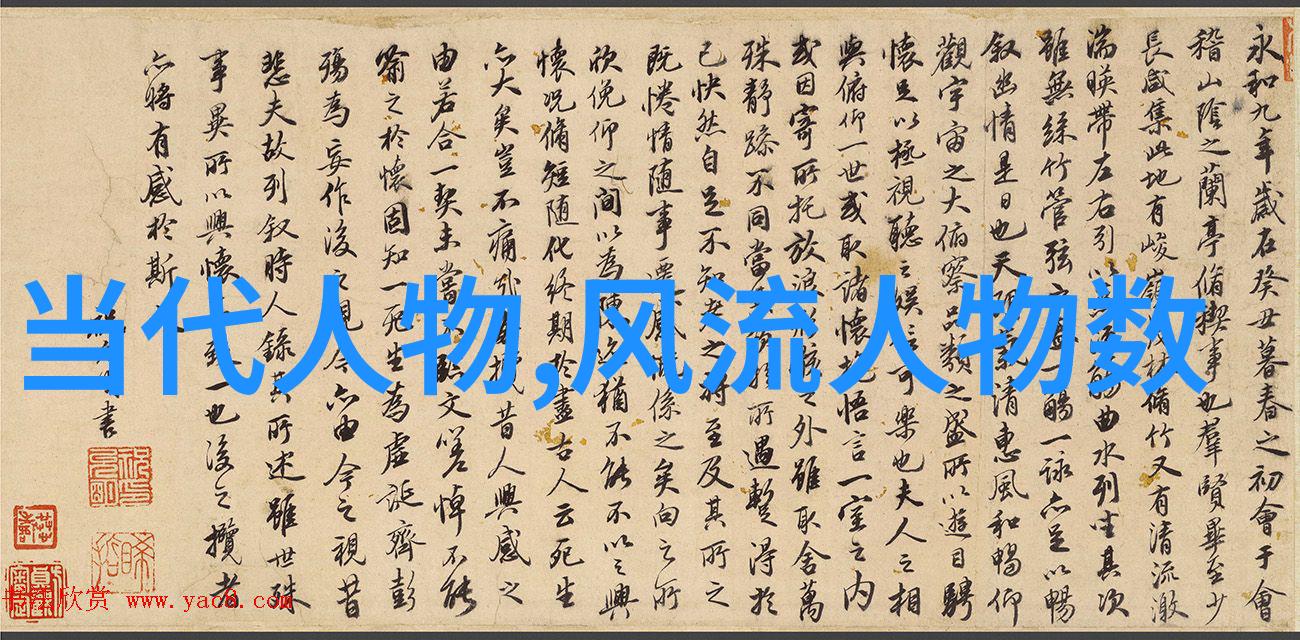 永和九年歲在癸丑暮春之初會于會
稽山陰之蘭亭脩禊事也羣賢畢至少
長咸集此地有峻嶺茂林脩竹又有清流激
湍暎帶左右引以為曲水列坐其次
雖無絲竹管弦之盛一觴一詠亦足以暢
叙幽情是日也天朗氣清惠風和暢仰
觀宇宙之大俯察品類之盛所以遊目騁
懷足以極視聽之娛信可樂也夫人之相
與俯仰一世或取諸懷抱悟言一室之內
或因寄所托放浪形骸之外雖取舍萬
殊静躁不同當其欣於所遇暫得於
己快然自足不知老之將至及其所之
既惓情随事遷感慨係之矣向之所
欣俛仰之間以為陳迹猶不能不以之興
懷況脩短随化終期於盡古人云死生
亦大矣豈不痛哉每攬昔人興感之
由若合一契未嘗不臨文嗟悼不能
喻之於懷固知一死生為虛誕齊彭
殤為妄作後之視今亦由今之視昔
悲夫故列叙時人錄其所述雖世殊
事異所以興懷其致一也後之攬者
亦將有感於斯文
書
当代人物,风流人物数
欣赏 www.yac8.com